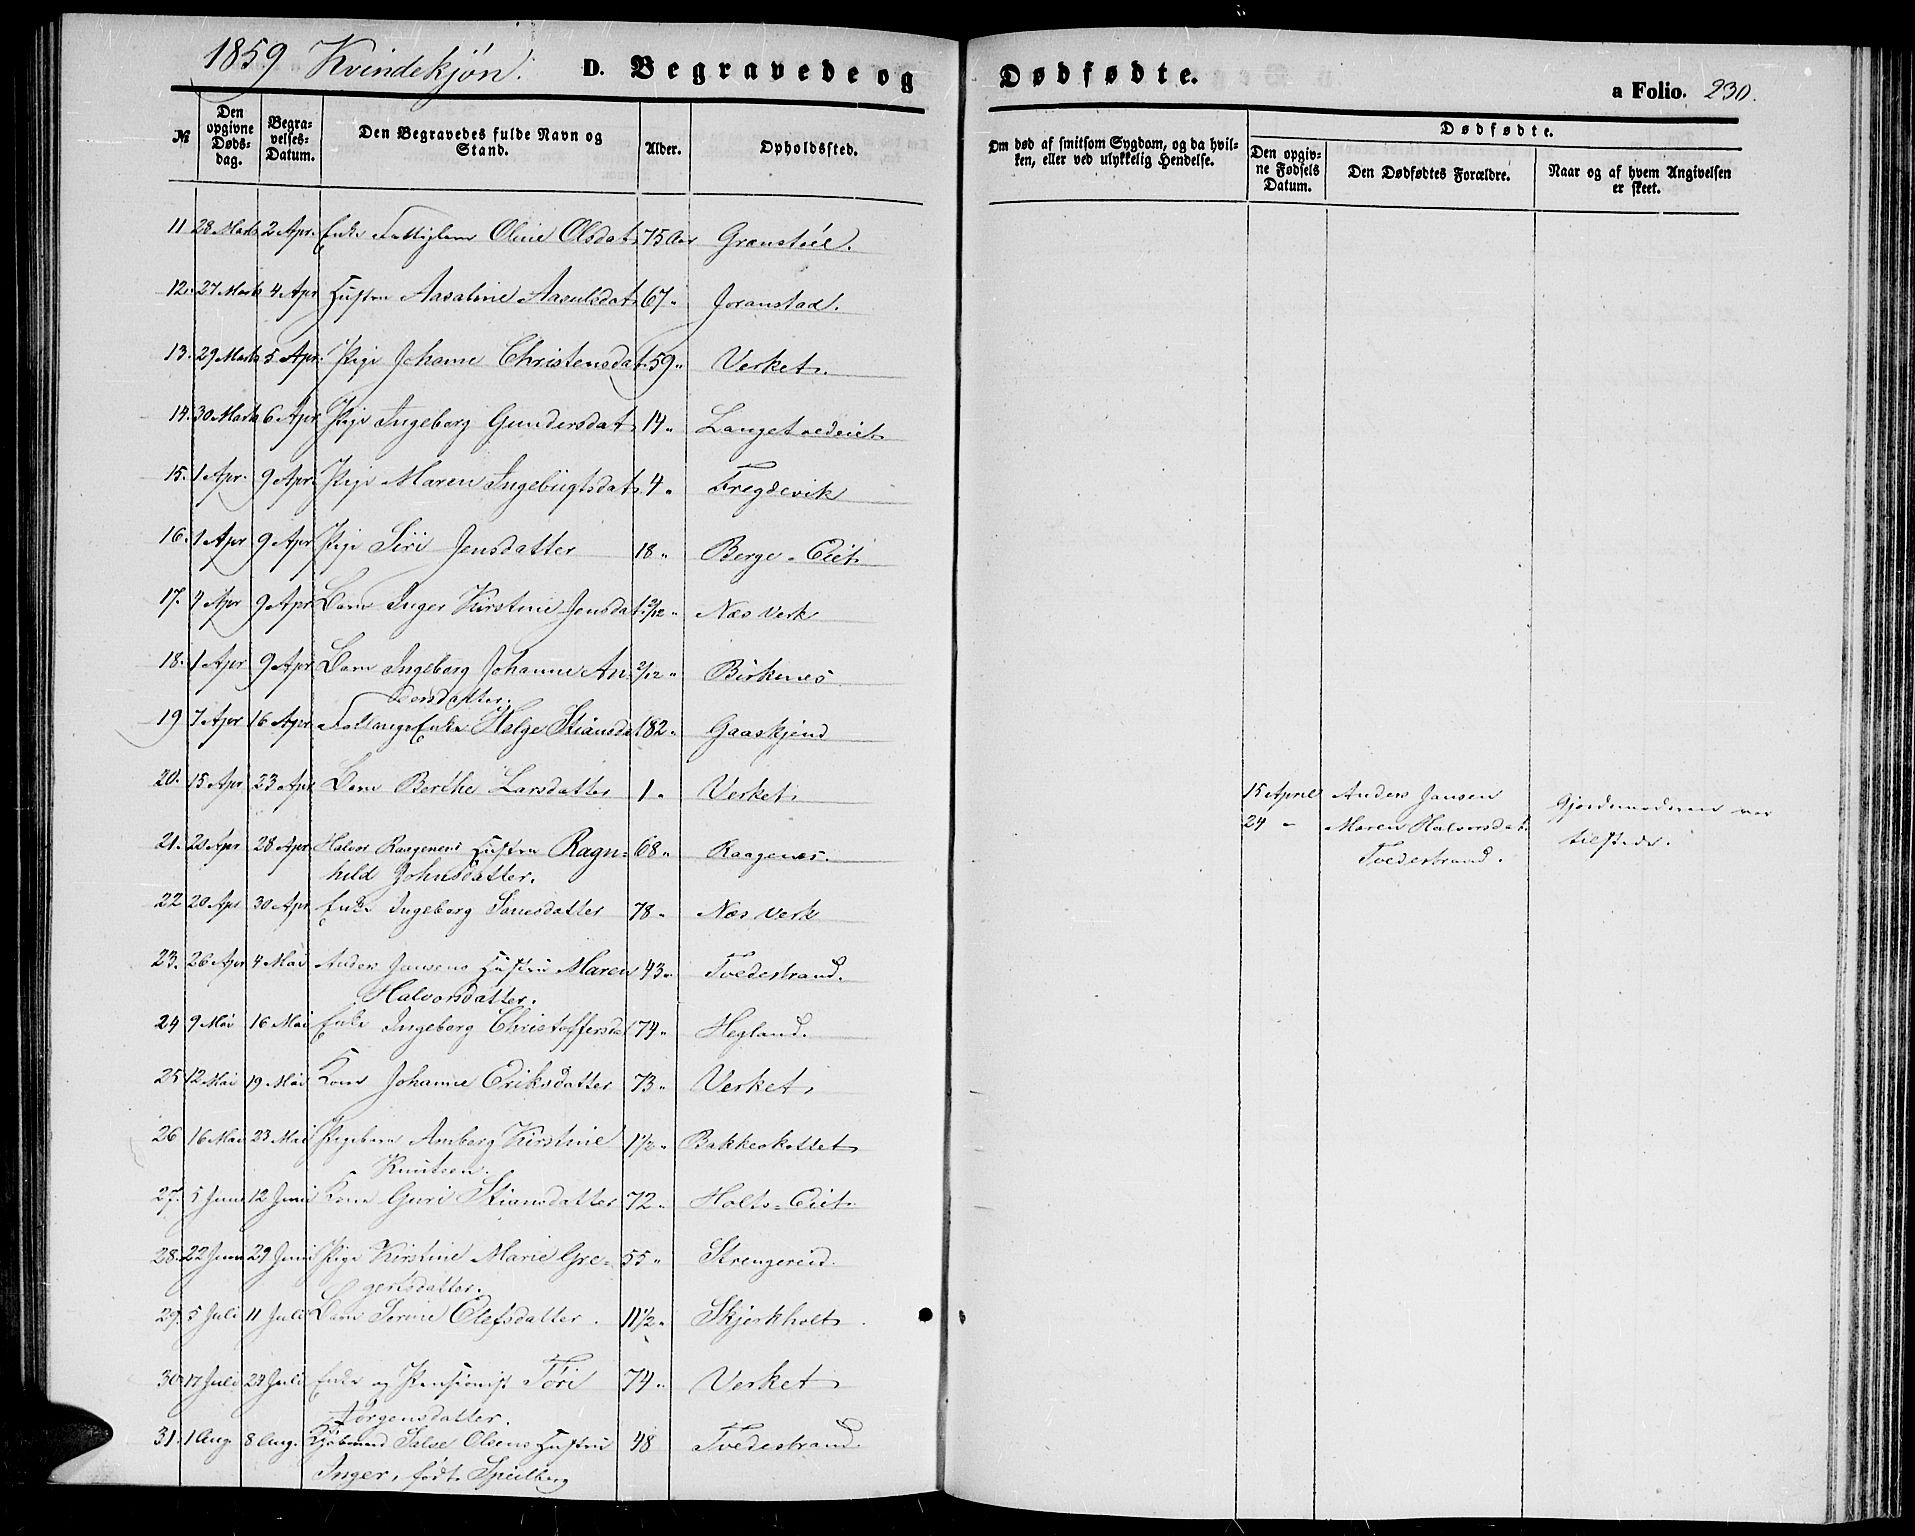 1859 Kvindekjøn.
D. Begravede og Dødfødte.
a Folio. 230.
№
Den opgivne Døds-dag.
Begra-velses-Datum.
Den Begravedes fulde Navn og Stand.
Alder.
Opholdssted.
Om død af smitsom Sygdom, og da hvil-
ken, eller ved ulykkelig Hendelse.
Dødfødte.
Den opgiv-ne Fødsels Datum.
Den Dødfødtes Forældre.
Naar og af hvem Angivelsen er skeet.
11. 28 Marts 2 Apr. Enke Fattiglem Oline Olsdat. 75 Aar
12. 27 Marts 4 Apr Hustru Aasaline Aasulsdat. 67 " Joranstad.
13. 29 Marts 5 Apr. Pige Johanne Christensdat. 59 " Verket.
14. 30 Marts 6 Apr Pige Ingeborg Gundersdat. 14 "
15. 1 Apr. 9 Apr. Pige Maren Ingebrigtsdat. 4 " Fregdevik
16. 1 Apr 9 Apr Pige Siri Jensdatter 18 " Berge-Eiet
17. 4 Apr 9 Apr Barn Inger Kirstine Jensdat. Næs Verk
18. 1 Apr 9 Apr Barn Ingeborg Johanne An- 2/12 " Birkenes
dersdatter.
19 7 Apr 16 Apr. Enke Helge Stiansdat 82 " Gaaskjend
20. 15 Apr 23 Apr Barn Berthe Larsdatter 1 " Verket
15 April Anders Jansen Gjordemoderen var
24 - Maren Halvorsdat. tilstede.
Tvedestrand.
21. 22 Apr 28 Apr. Halvor Raagenes Hustru Ragn- 68 " Raagenes.
hild Johnsdatter.
22 20 Apr 30 Apr. Enke Ingeborg 78 " Næs Verk
23. 26 Apr 4 Mai Anders Jansens Hustru Maren 43 " Tvedestrand.
Halvorsdatter.
24 9 Mai 16 Mai Enke Ingeborg Christoffersdat 74 " Hegland.
25 12 Mai 19 Mai Kone Johanne Eriksdatter 73 " Verket
26 16 Mai 23 Mai Pigebarn Amberg Kirstine 1 1/2 " Bakkeskottet
Knutsen.
27. 5 Juni 12 Juni Kone Guri Stiansdatter 72 " Holts-Eiet.
28. 22 Juni 29 Juni Pige Kirstine Marie Gre- 55 " Strengereid.
gertsdatter.
29. 5 Juli 11 Juli Barn Sorine Olefsdatter. 11 1/2 " Skjerkholt
30 17 Juli 24 Juli Enke og Pensionist Töri 74 " Verket
Jörgensdatter.
31. 1 Aug. 8 Aug. Kjøbmand Salve Olsens Hustru 48 Tvedestrand.
Inger, født Speilberg